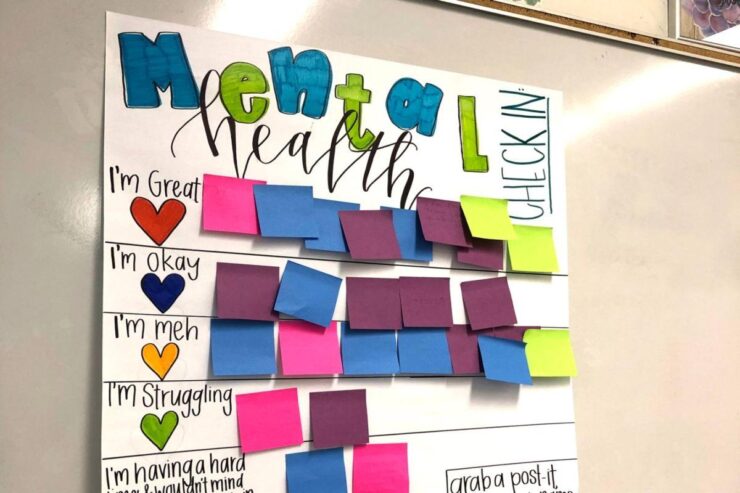 Mental
health
CHECK IN:
I'm Great
I'm okay
I'm meh
I'm Struggling
I'm having a hard
grab a post-it,